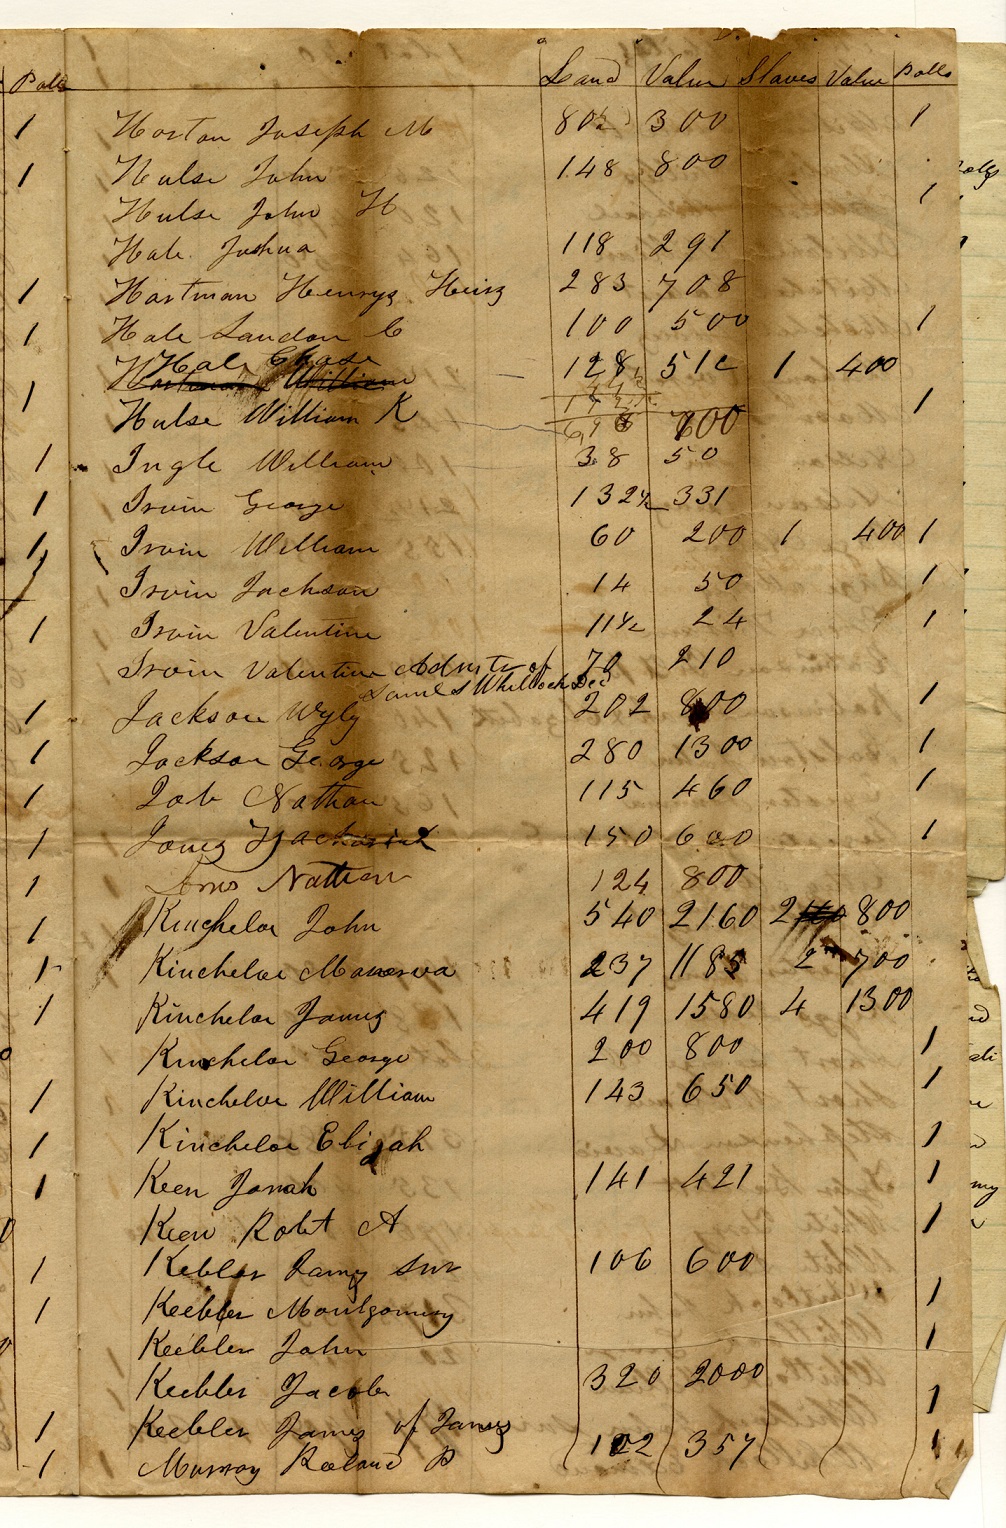 Polls Land Value Slaves Value Polls
1 Horton Joseph M 80½ 300 1
1 Hulse John 148 800
Hulse John H 1
Hale Joshua 118 291
1 Hartman Henrys Heirs 283 708
1 Hale Landon C 100 500 1
Hale Chase 128 512 1 400
Hartman William
1 Hulse William K 698 700 1
1 Ingle William 38 50
1 Irvin George 132½ 331
1 Irvin William 60 200 1 400 1
Irvin Jackson 14 50 1
1 Irvin Valentine 11½ 24 1
Irvin Valentine Admtr of 70 210
Saml S Whitlock Dec
1 Jackson Wyly 202 800 1
1 Jackson George 280 1300 1
1 Job Nathan 115 460 1
1 Jones Zachariah 150 600 1
1 Nathan 124 800
1 Kincheloe John 540 2160 2 800
1 Kincheloe Manerva 237 1185 2 700
1 Kincheloe James 419 1580 4 1300
0 Kincheloe George 200 800 1
1 Kincheloe William 143 650 1
1 Kincheloe Elijah 1
1 Keen Jonah 141 421 1
0 Keen Robt A 1
1 Kebler James Snr 106 600
1 Keebler Montgomery 1
0 Keebler John 1
Keebler Jacob 320 2000
1 Keebler James of James 1
1 Murray Roeland P 102 357 1